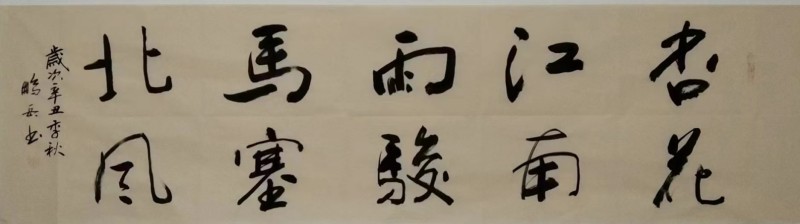 杏花
江南
雨駿
馬塞
北風
歲次辛丑季秋
鵬兵书